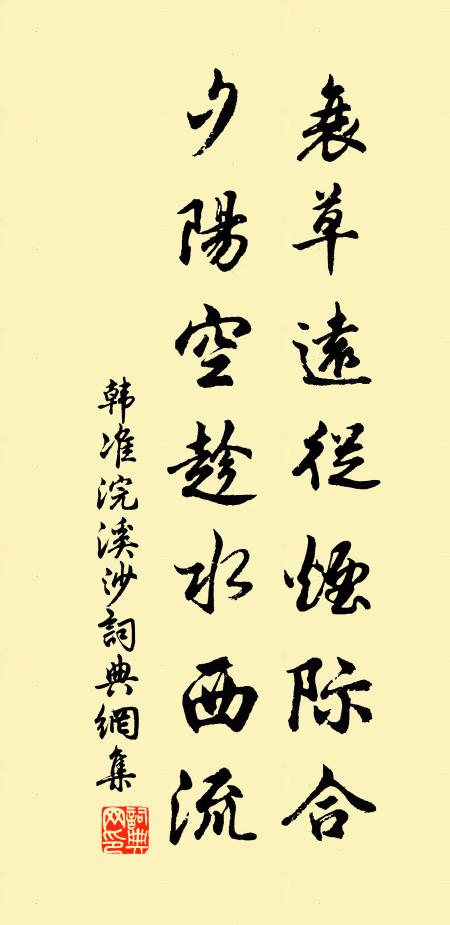 衰草遠從煙际合
夕陽空趁水西流
韩准浣溪沙詞典網集
詞典網印